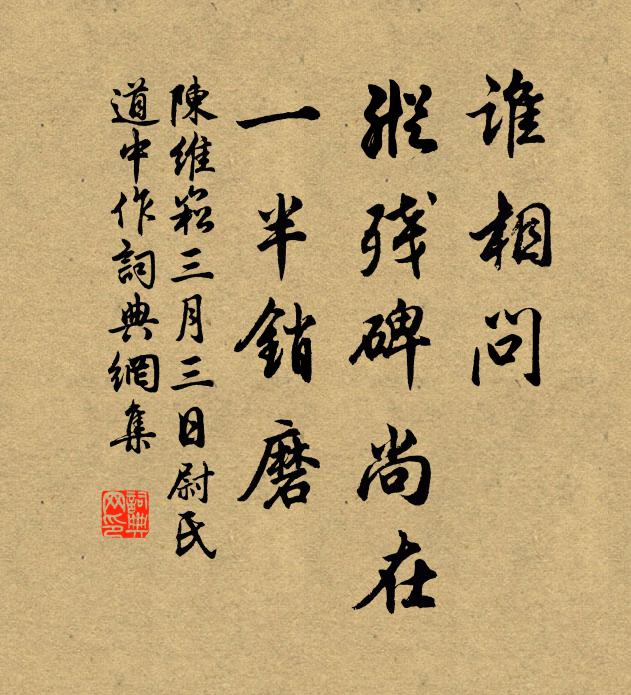 誰相問
縱殘碑尚在
一半銷磨
陳維崧三月三日尉氏
道中作詞典網集
詞典網印